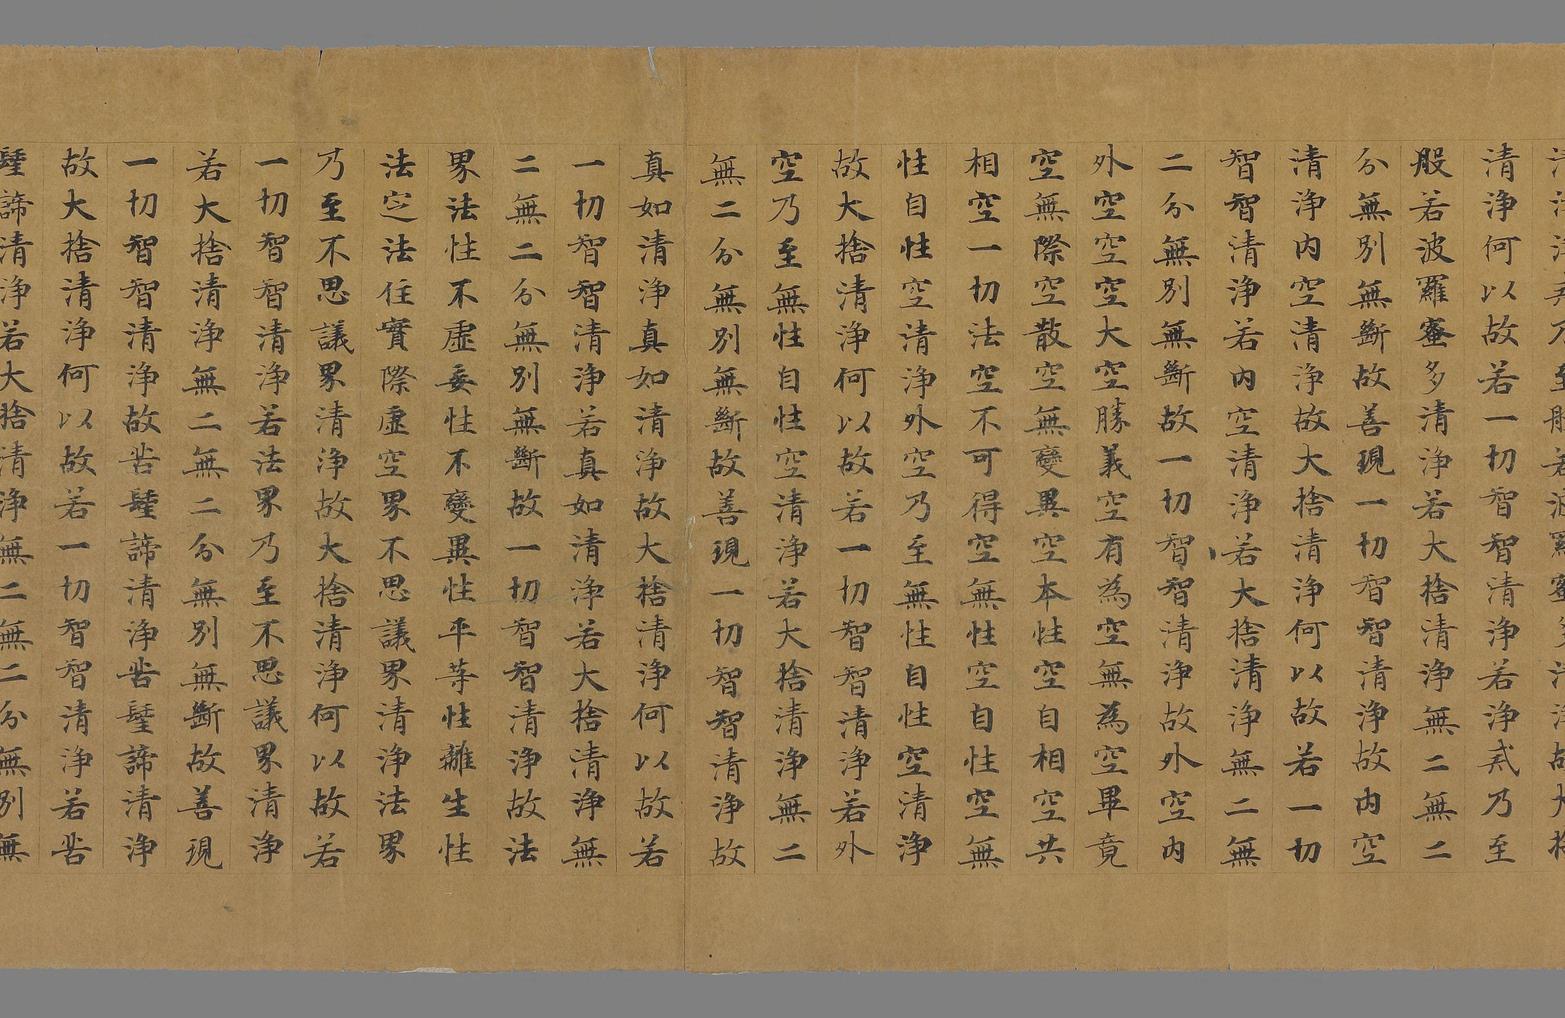 乃至般若波羅蜜多清淨故大捨
清淨何以故若一切智智清淨若淨戒乃至
般若波羅蜜多清淨若大捨清淨無二無二
分無別無斷故善現一切智智清淨故内空
清淨内空清淨故大捨清淨何以故若一切
智智清淨若内空清淨若大捨清淨無二無
二分無別無斷故一切智智清淨故外空内
外空空空大空勝義空有為空無為空畢竟
空無際空散空無變異空本性空自相空共
相空一切法空不可得空無性空自性空無
性自性空清淨外空乃至無性自性空清淨
故大捨清淨何以故若一切智智清淨若外
空乃至無性自性空清淨若大捨清淨無二
無二分無別無斷故善現一切智智清淨故
真如清淨真如清淨故大捨清淨何以故若
一切智智清淨若真如清淨若大捨清淨無
二無二分無別無斷故一切智智清淨故法
界法性不虛妄性不變異性平等性離生性
法定法住實際虛空界不思議界清淨法界
乃至不思議界清淨故大捨清淨何以故若
一切智智清淨若法界乃至不思議界清淨
若大捨清淨無二無二分無別無斷故善現
一切智智清淨故苦聖諦清淨苦聖諦清淨
故大捨清淨何以故若一切智智清淨若苦
聖諦清淨若大捨清淨無二無二分無別無